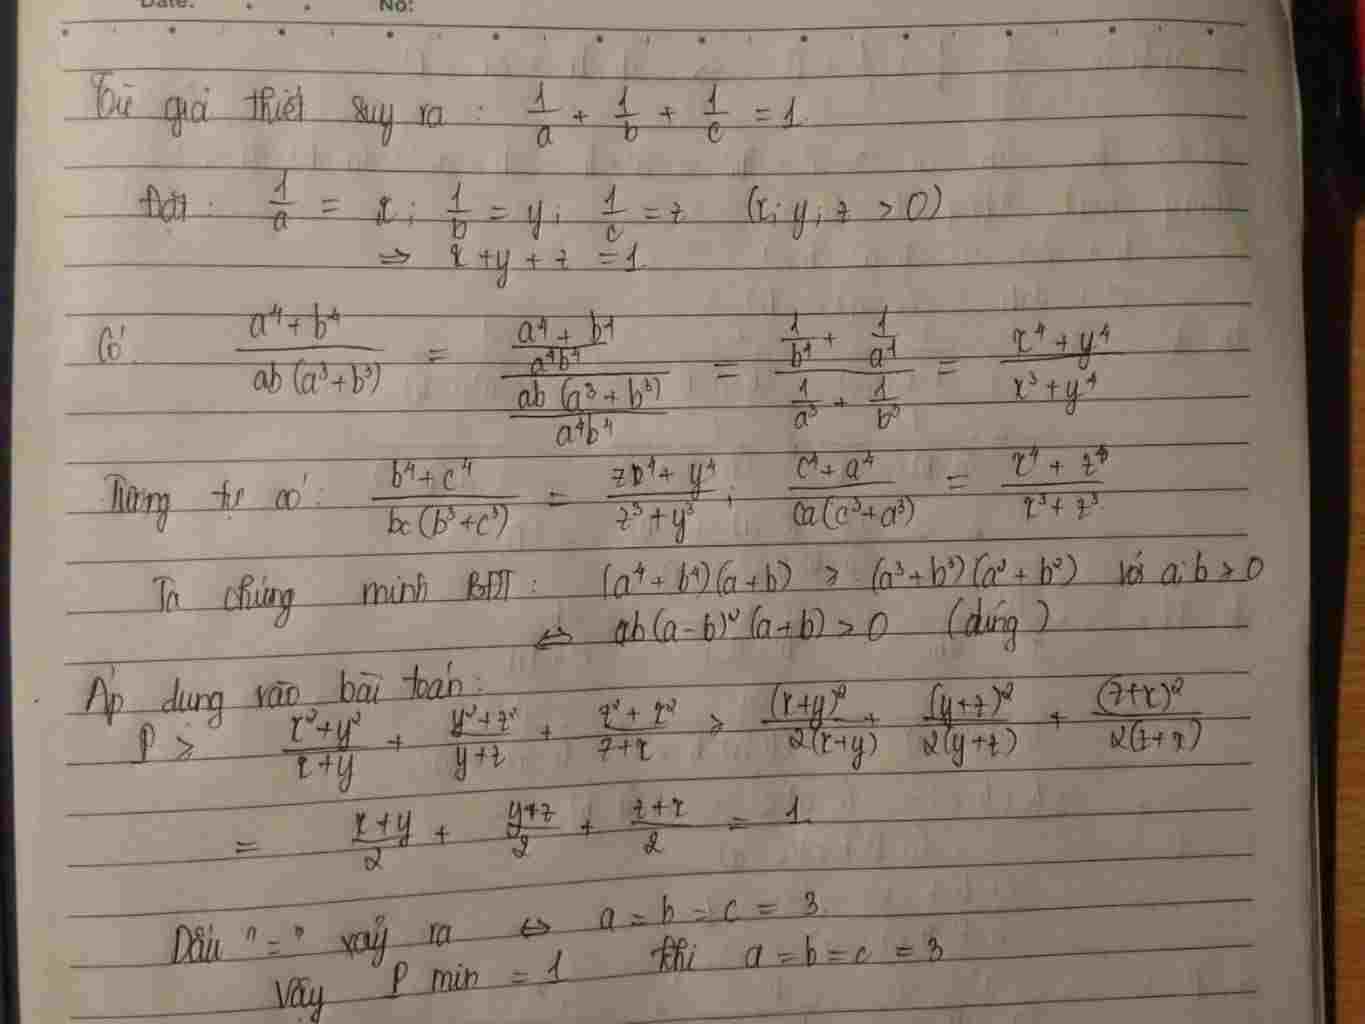 Date: No:
Từ giả thiết suy ra : 1/a + 1/b + 1/c = 1
Đặt : 1/a = x ; 1/b = y ; 1/c = z (x ; y ; z > 0)
⇒ x + y + z = 1
Có (a⁴ + b⁴)/(ab (a³ + b³)) = ((a⁴ + b⁴)/(a⁴b⁴))/((ab (a³ + b³))/(a⁴b⁴)) = (1/b⁴ + 1/a⁴)/(1/a³ + 1/b³) = (x⁴ + y⁴)/(x³ + y⁴)
Tương tự có : (b⁴ + c⁴)/(bc (b³ + c³)) = (z⁴ + y⁴)/(z³ + y³) ; (c⁴ + a⁴)/(ca (c³ + a³)) = (x⁴ + z⁴)/(x³ + z³)
Ta chứng minh BĐT : (a⁴ + b⁴)(a + b) ≥ (a³ + b³)(a² + b²) với a ; b > 0
⇔ ab (a - b)² (a + b) ≥ 0 (đúng)
Áp dụng vào bài toán :
P ≥ (x² + y²)/(x + y) + (y² + z²)/(y + z) + (z² + x²)/(z + x) ≥ (x+y)²/(2(x+y)) + (y+z)²/(2(y+z)) + (z+x)²/(2(z+x))
= (x + y)/2 + (y + z)/2 + (z + x)/2 = 1
Dấu "=" xảy ra ⇔ a = b = c = 3
Vậy P min = 1 khi a = b = c = 3